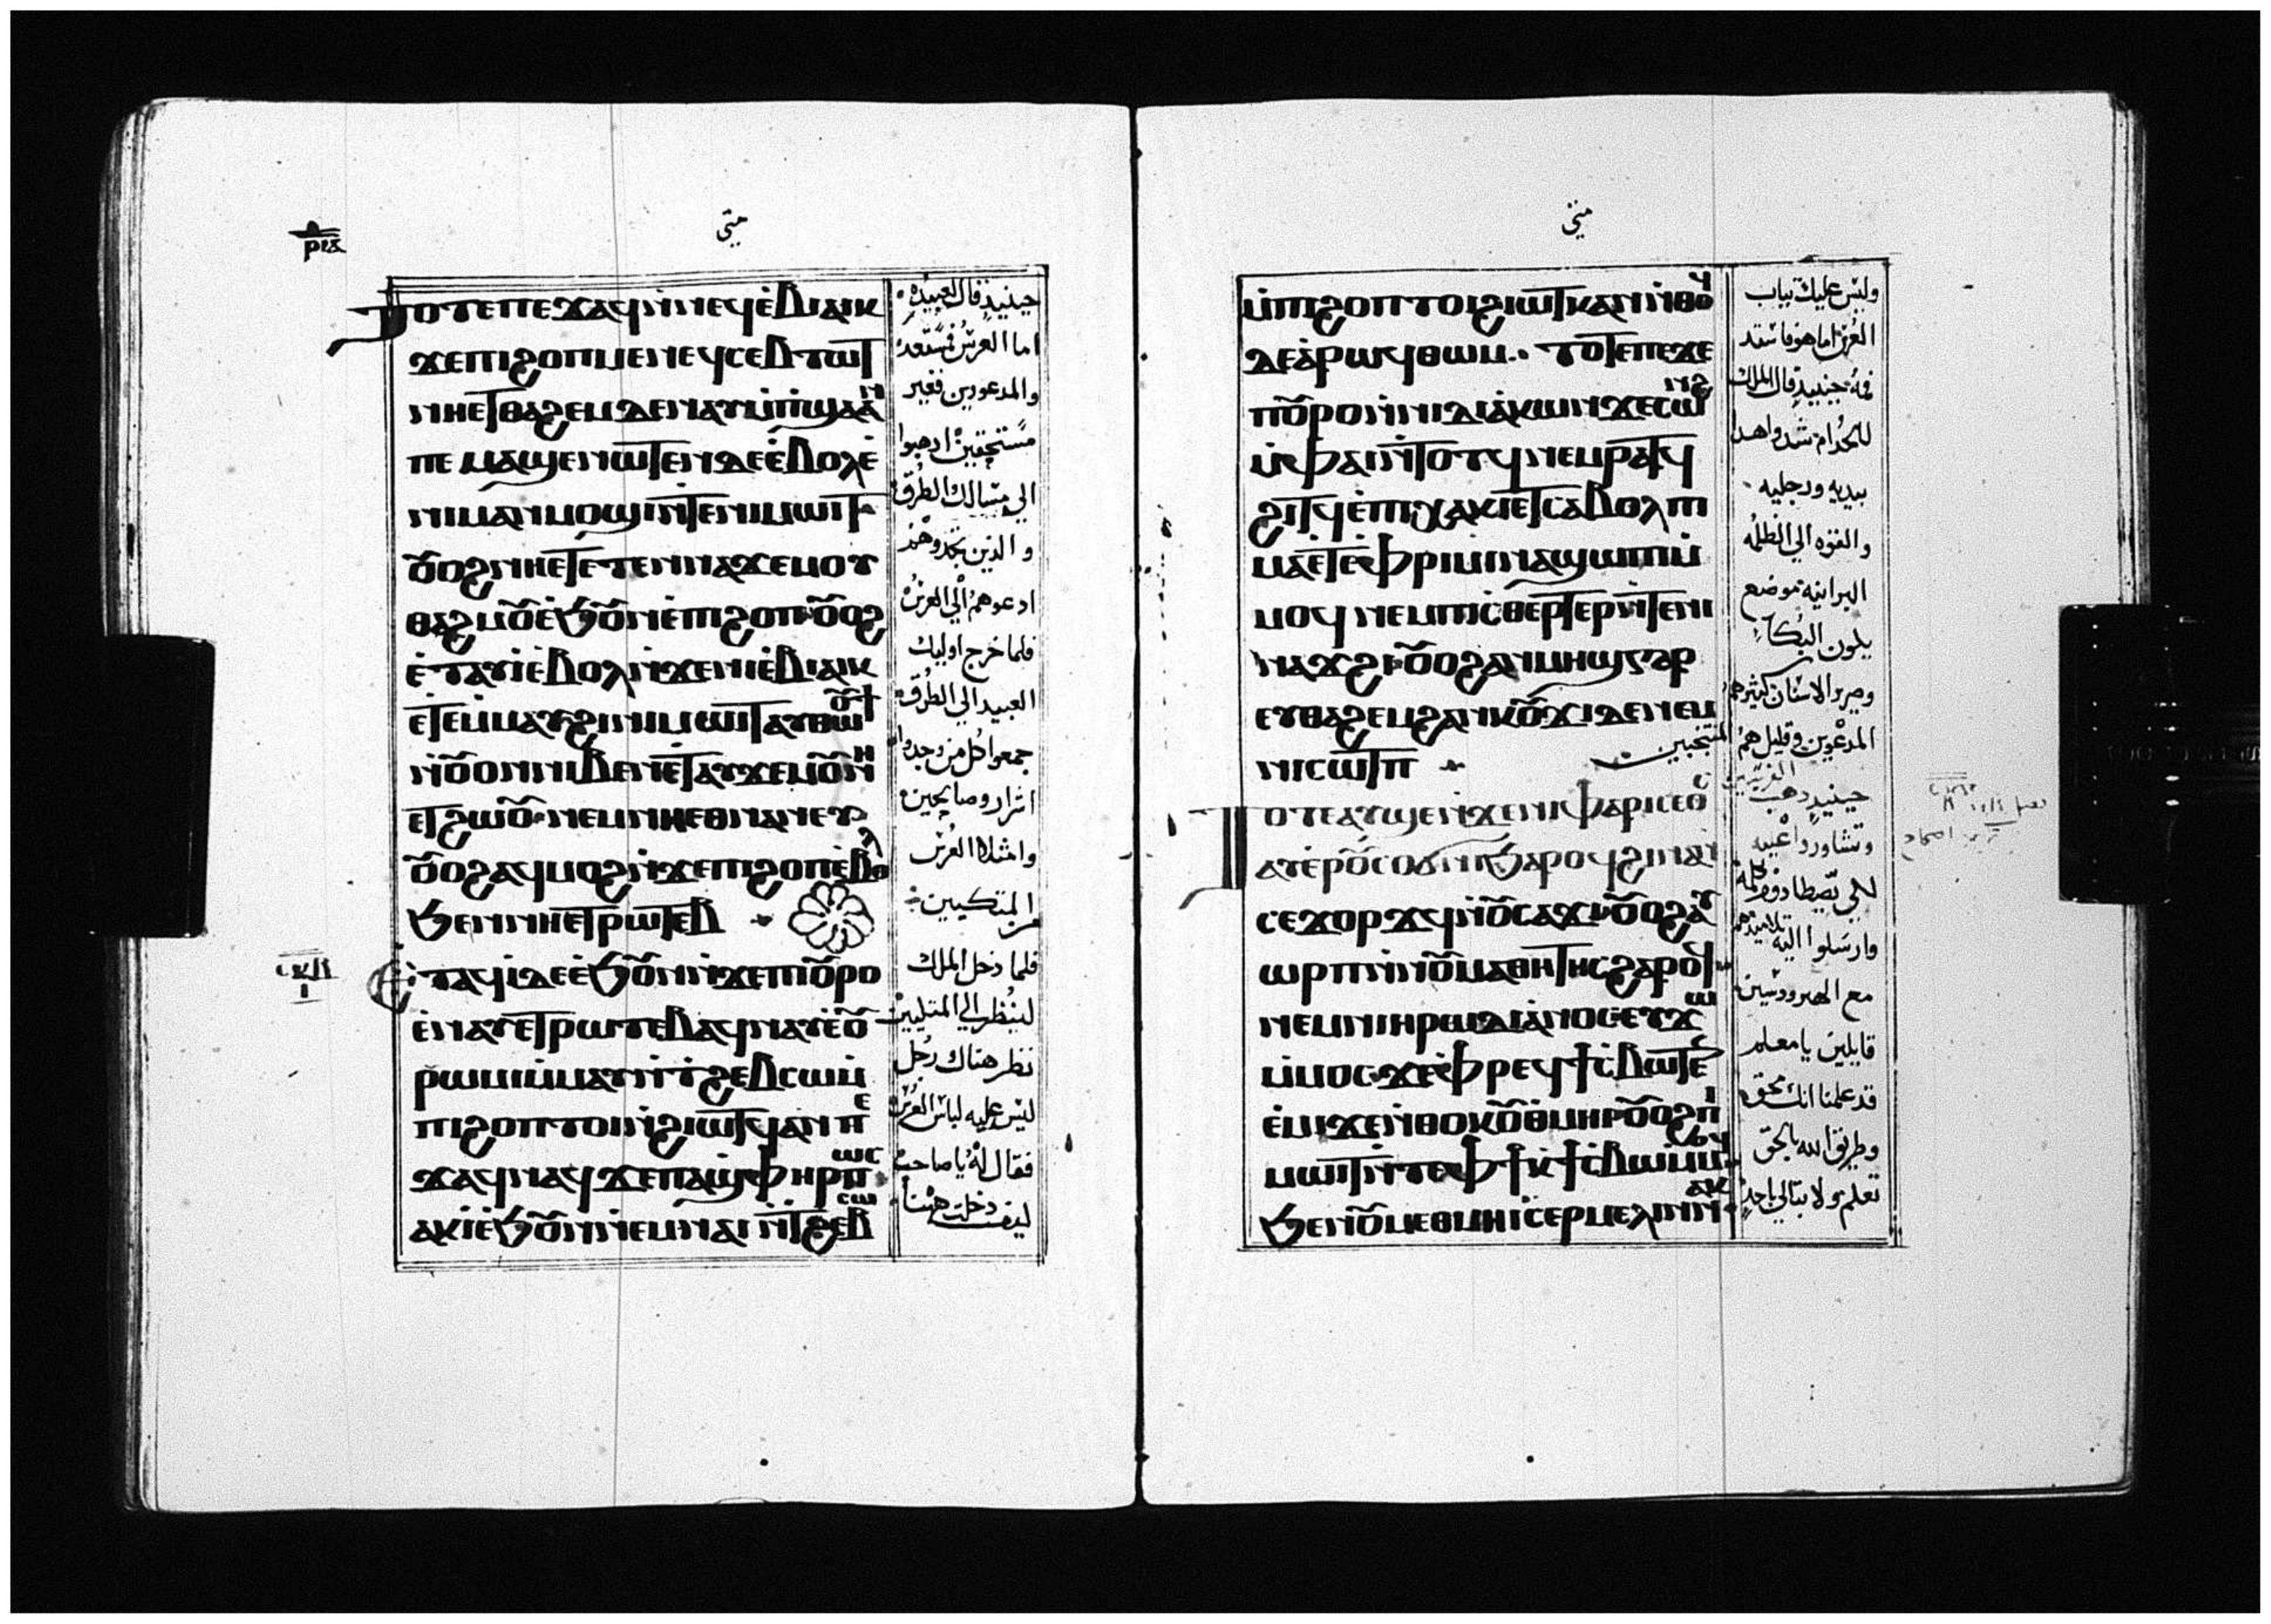 متى
ⲣⲓⲁ
ⲧⲟⲧⲉ ⲡⲉϫⲁϥ ⲛ̀ⲛⲉϥⲉ̀ⲃⲓⲁⲓⲕ
ϫⲉ ⲡⲓϩⲟⲡ ⲙⲉⲛ ⲉϥⲥⲉⲃⲧⲱⲧ
ⲛⲏⲉⲧⲑⲁϩⲉⲙ ⲇⲉ ⲛⲁⲩⲙ̀ⲡ̀ϣⲁ ⲁⲛ
ⲡⲉ ⲙⲁϣⲉⲛⲱⲧⲉⲛ ⲇⲉ ⲉ̀ⲃⲟⲗ ⲉ̀
ⲛⲓⲙⲁⲛⲙⲟϣⲓ ⲛ̀ⲧⲉ ⲛⲓⲙⲱⲓⲧ
ⲟⲩⲟϩ ⲛⲏⲉⲧⲉⲧⲉⲛⲛⲁϫⲉⲙⲟⲩ
ⲑⲁϩⲙⲟⲩ ⲉ̀ϧⲟⲩⲛ ⲉ̀ⲡⲓϩⲟⲡ ⲟⲩⲟϩ
ⲉ̀ⲧⲁⲩⲓ̀ ⲉ̀ⲃⲟⲗ ⲛ̀ϫⲉ ⲛⲓⲉ̀ⲃⲓⲁⲓⲕ
ⲉⲧⲉⲙ̀ⲙⲁⲩ ϩⲓ ⲛⲓⲙⲱⲓⲧ ⲁⲩⲑⲱⲟⲩϯ
ⲛ̀ⲟⲩⲟⲛ ⲛⲓⲃⲉⲛ ⲉ̀ⲧⲁⲩϫⲉⲙⲟⲩ ⲛⲏ
ⲉⲧϩⲱⲟⲩ ⲛⲉⲙ ⲛⲏⲉⲑⲛⲁⲛⲉⲩ
ⲟⲩⲟϩ ⲁϥⲙⲟϩ ⲛ̀ϫⲉ ⲡⲓϩⲟⲡ ⲉ̀ⲃⲟⲗ
ϧⲉⲛ ⲛⲏⲉⲧⲣⲱⲧⲉⲃ
ⲉ̀ⲧⲁϥⲓ̀ ⲇⲉ ⲉ̀ϧⲟⲩⲛ ⲛ̀ϫⲉ ⲡⲟⲩⲣⲟ
ⲉ̀ⲛⲁⲩ ⲉⲧⲣⲱⲧⲉⲃ ⲁϥⲛⲁⲩ ⲉ̀ⲟⲩ
ⲣⲱⲙⲓ ⲙ̀ⲙⲁⲩ ⲛ̀ⲧϩⲉⲃⲥⲱ ⲙ̀
ⲡⲓϩⲟⲡ ⲧⲟⲓ ⲛ̀ϩⲓⲱⲧϥ ⲁⲛ ⲡⲉ
ϫⲁϥ ⲛⲁϥ ϫⲉ ⲡⲁϣⲫⲏⲣ ⲡⲱⲥ
ⲁⲕⲓ̀ ⲉ̀ϧⲟⲩⲛ ⲛ̀ⲉⲙⲛⲁⲓ ⲛ̀ⲧϩⲉⲃⲥⲱ
حينيذ قال لعبيده
اما العرس فمستعد
والمدعويين فغير
مستحقين ادهبوا
الي مسالك الطرق
والذين تجدوهم
ادعوهم الي العرس
فلما خرج اوليك
العبيد الي الطرق
جمعوا كل من وجدوا
اشرار وصالحين
وامتلا العرس
من المتكيين
فلما دخل الملك
لينظر الي المتكيين
نظر هناك رجل
ليس عليه لباس العرس
فقال له يا صاحب
كيف دخلت هنا
متى
ⲙ̀ⲡⲓϩⲟⲡ ⲧⲟⲓ ϩⲓⲱⲧⲕ ⲁⲛ ⲛ̀ⲑⲟϥ
ⲇⲉ ⲁ̀ⲣⲱϥ ⲑⲱⲙ ⲧⲟⲧⲉ ⲡⲉϫⲉ
ⲡⲟⲩⲣⲟ ⲛ̀ⲛⲓⲇⲓⲁ̀ⲕⲱⲛ ϫⲉ ⲥⲱⲛϩ
ⲙ̀ⲫⲁⲓ ⲛ̀ⲧⲟⲧϥ ⲛⲉⲙ ⲣⲁⲧϥ
ϩⲓⲧϥ ⲉ̀ⲡⲓⲭⲁⲕⲓ ⲉⲧⲥⲁⲃⲟⲗ ⲡⲓ
ⲙⲁ ⲉ̀ⲧⲉ ⲫ̀ⲣⲓⲙⲓ ⲛⲁϣⲱⲡⲓ ⲙ̀
ⲙⲟϥ ⲛⲉⲙ ⲡⲓⲥ̀ⲑⲉⲣⲧⲉⲣ ⲛ̀ⲧⲉ ⲛⲓ
ⲛⲁϫϩⲓ ⲟⲩⲟϩ ⲁⲛ ⲙⲏϣ ⲅⲁⲣ
ⲉⲩⲑⲁϩⲉⲙ ϩⲁⲛⲕⲟⲩϫⲓ ⲇⲉ ⲛⲉⲙ
ⲛⲓⲥⲱⲧⲡ
ⲧⲟⲧⲉ ⲁⲩϣⲉ ⲛ̀ϫⲉ ⲛⲓⲫⲁⲣⲓⲥⲉⲟⲥ
ⲁⲩⲉⲣⲟⲩⲥⲟϭⲛⲓ ϧⲁⲣⲟϥ ϩⲓⲛⲁ ⲛ̀
ⲥⲉϫⲟⲣϫϥ ⲛ̀ⲟⲩⲥⲁϫⲓ ⲟⲩⲟϩ ⲁⲩ
ⲱⲣⲡ ⲛ̀ⲛⲟⲩⲙⲁⲑⲏⲧⲏⲥ ϩⲁⲣⲟϥ
ⲛⲉⲙ ⲛⲓⲏⲣⲱⲇⲓⲁ̀ⲛⲟⲥ ⲉⲩϫⲱ
ⲙ̀ⲙⲟⲥ ϫⲉ ⲫ̀ⲣⲉϥϯⲥ̀ⲃⲱ ⲧⲉⲛ
ⲉ̀ⲙⲓ ϫⲉ ⲛ̀ⲑⲟⲕ ⲟⲩⲑ̀ⲙⲏⲓ ⲟⲩⲟϩ ⲡⲓ
ⲙⲱⲓⲧ ⲛ̀ⲧⲉ ⲫϯ ⲕ̀ϯⲥ̀ⲃⲱ ⲙ̀ⲙⲟϥ
ϧⲉⲛ ⲟⲩⲙⲉⲑⲙⲏⲓ ⲥⲉⲣⲙⲉⲗⲓⲛ ⲛⲁⲕ
وليس عليك تياب
العرس اما هو فاستد
فمه حينيذ قال الملك
للخدام شدوا هدا
بيديه ورجليه
والقوه الي الظلمه
البرانيه موضع
يكون البكا
وصرير الاسنان كثير هم
المدعوين وقليل هم
المنتجبين
حينيذ دهب الفريسيين
وتشاوروا عليه
لكي يصطادوه بكلمة
وارسلوا اليه تلاميذهم
مع الهرودسيين
قايلين يا معلم
قد علمنا انك محق
وطريق الله بالحق
تعلم ولا تبالي باحد